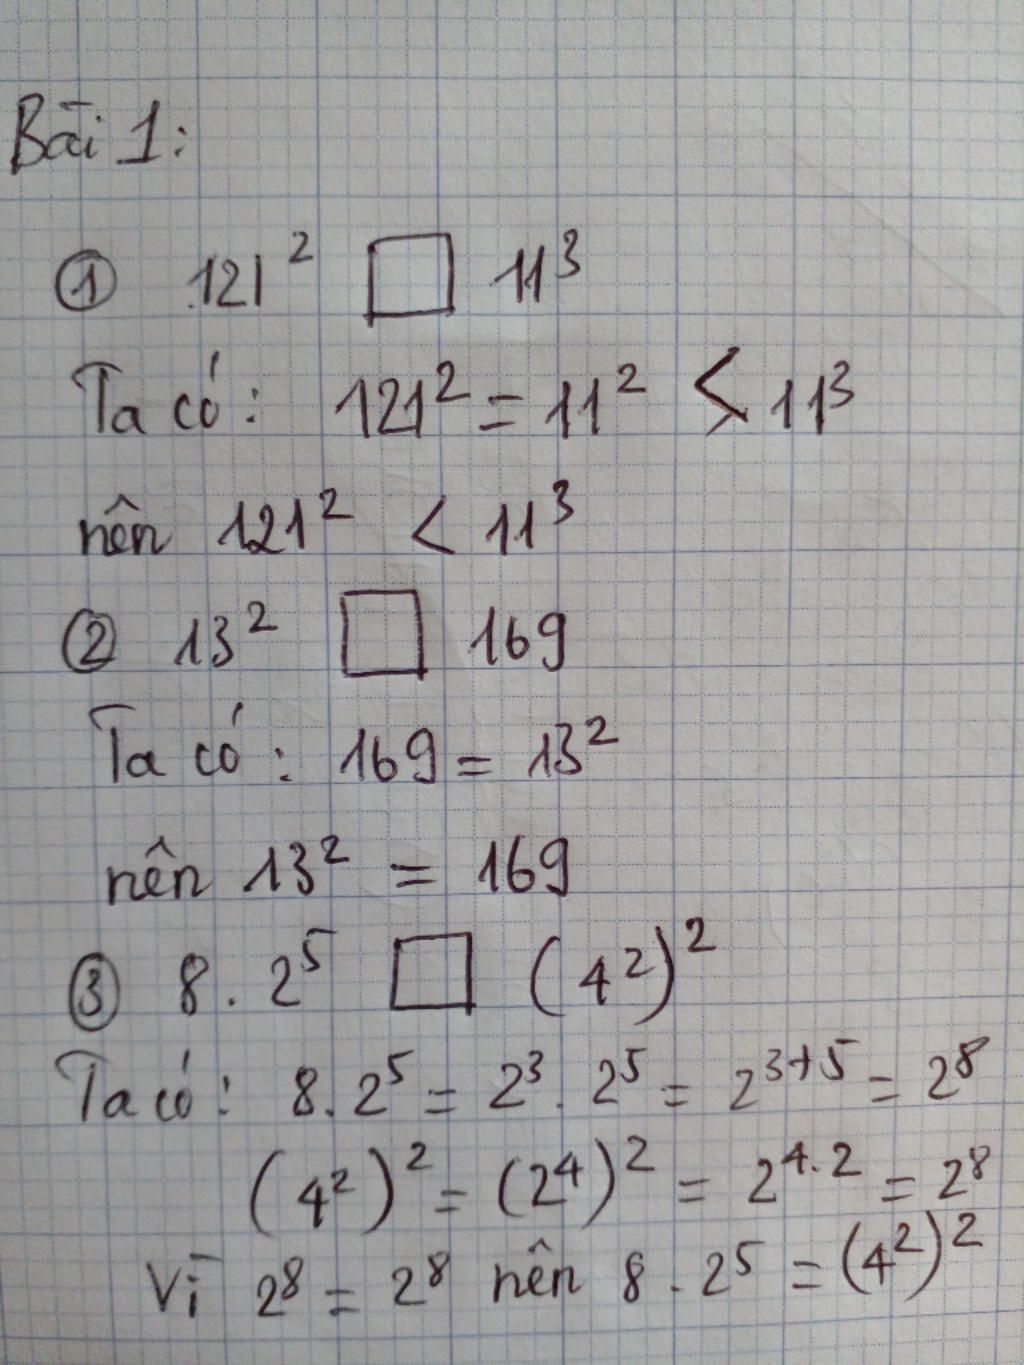 Bài 1:
① 121² □ 11³
Ta có: 121² = 11² < 11³
nên 121² < 11³
② 13² □ 169
Ta có: 169 = 13²
nên 13² = 169
③ 8 . 2⁵ □ (4²)²
Ta có: 8 . 2⁵ = 2³ . 2⁵ = 2³⁺⁵ = 2⁸
(4²)² = (2⁴)² = 2⁴·² = 2⁸
Vì 2⁸ = 2⁸ nên 8 . 2⁵ = (4²)²